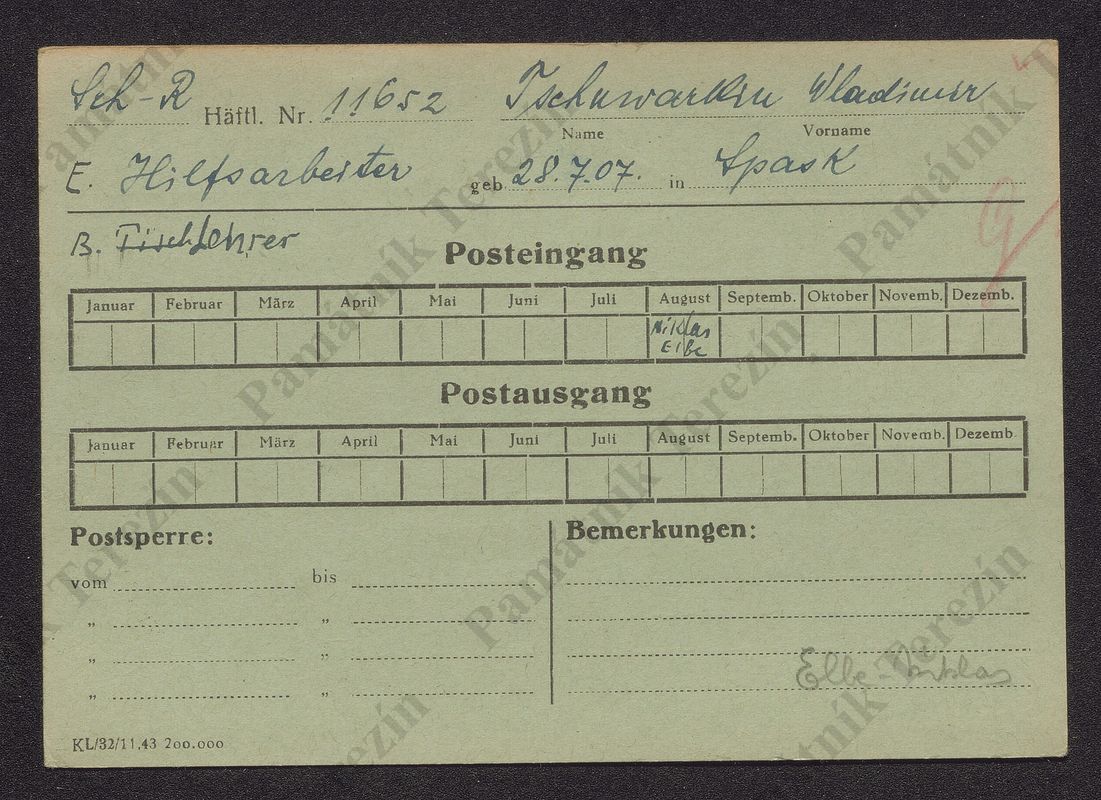 Sch-R Häftl. Nr. 11652 Tschuwarkin Wladimir
Name Vorname
E. Hilfsarbeiter geb 28.7.07. in Spask
B.
Posteingang
Januar Februar März April Mai Juni Juli August Septemb. Oktober Novemb. Dezemb.
Niklas
Elbe
Postausgang
Januar Februar März April Mai Juni Juli August Septemb. Oktober Novemb. Dezemb
Postsperre: Bemerkungen:
vom bis
„ „
„ „
„ „
Elbe-Niklas
KL/32/11.43 200.000
Památník Terezín